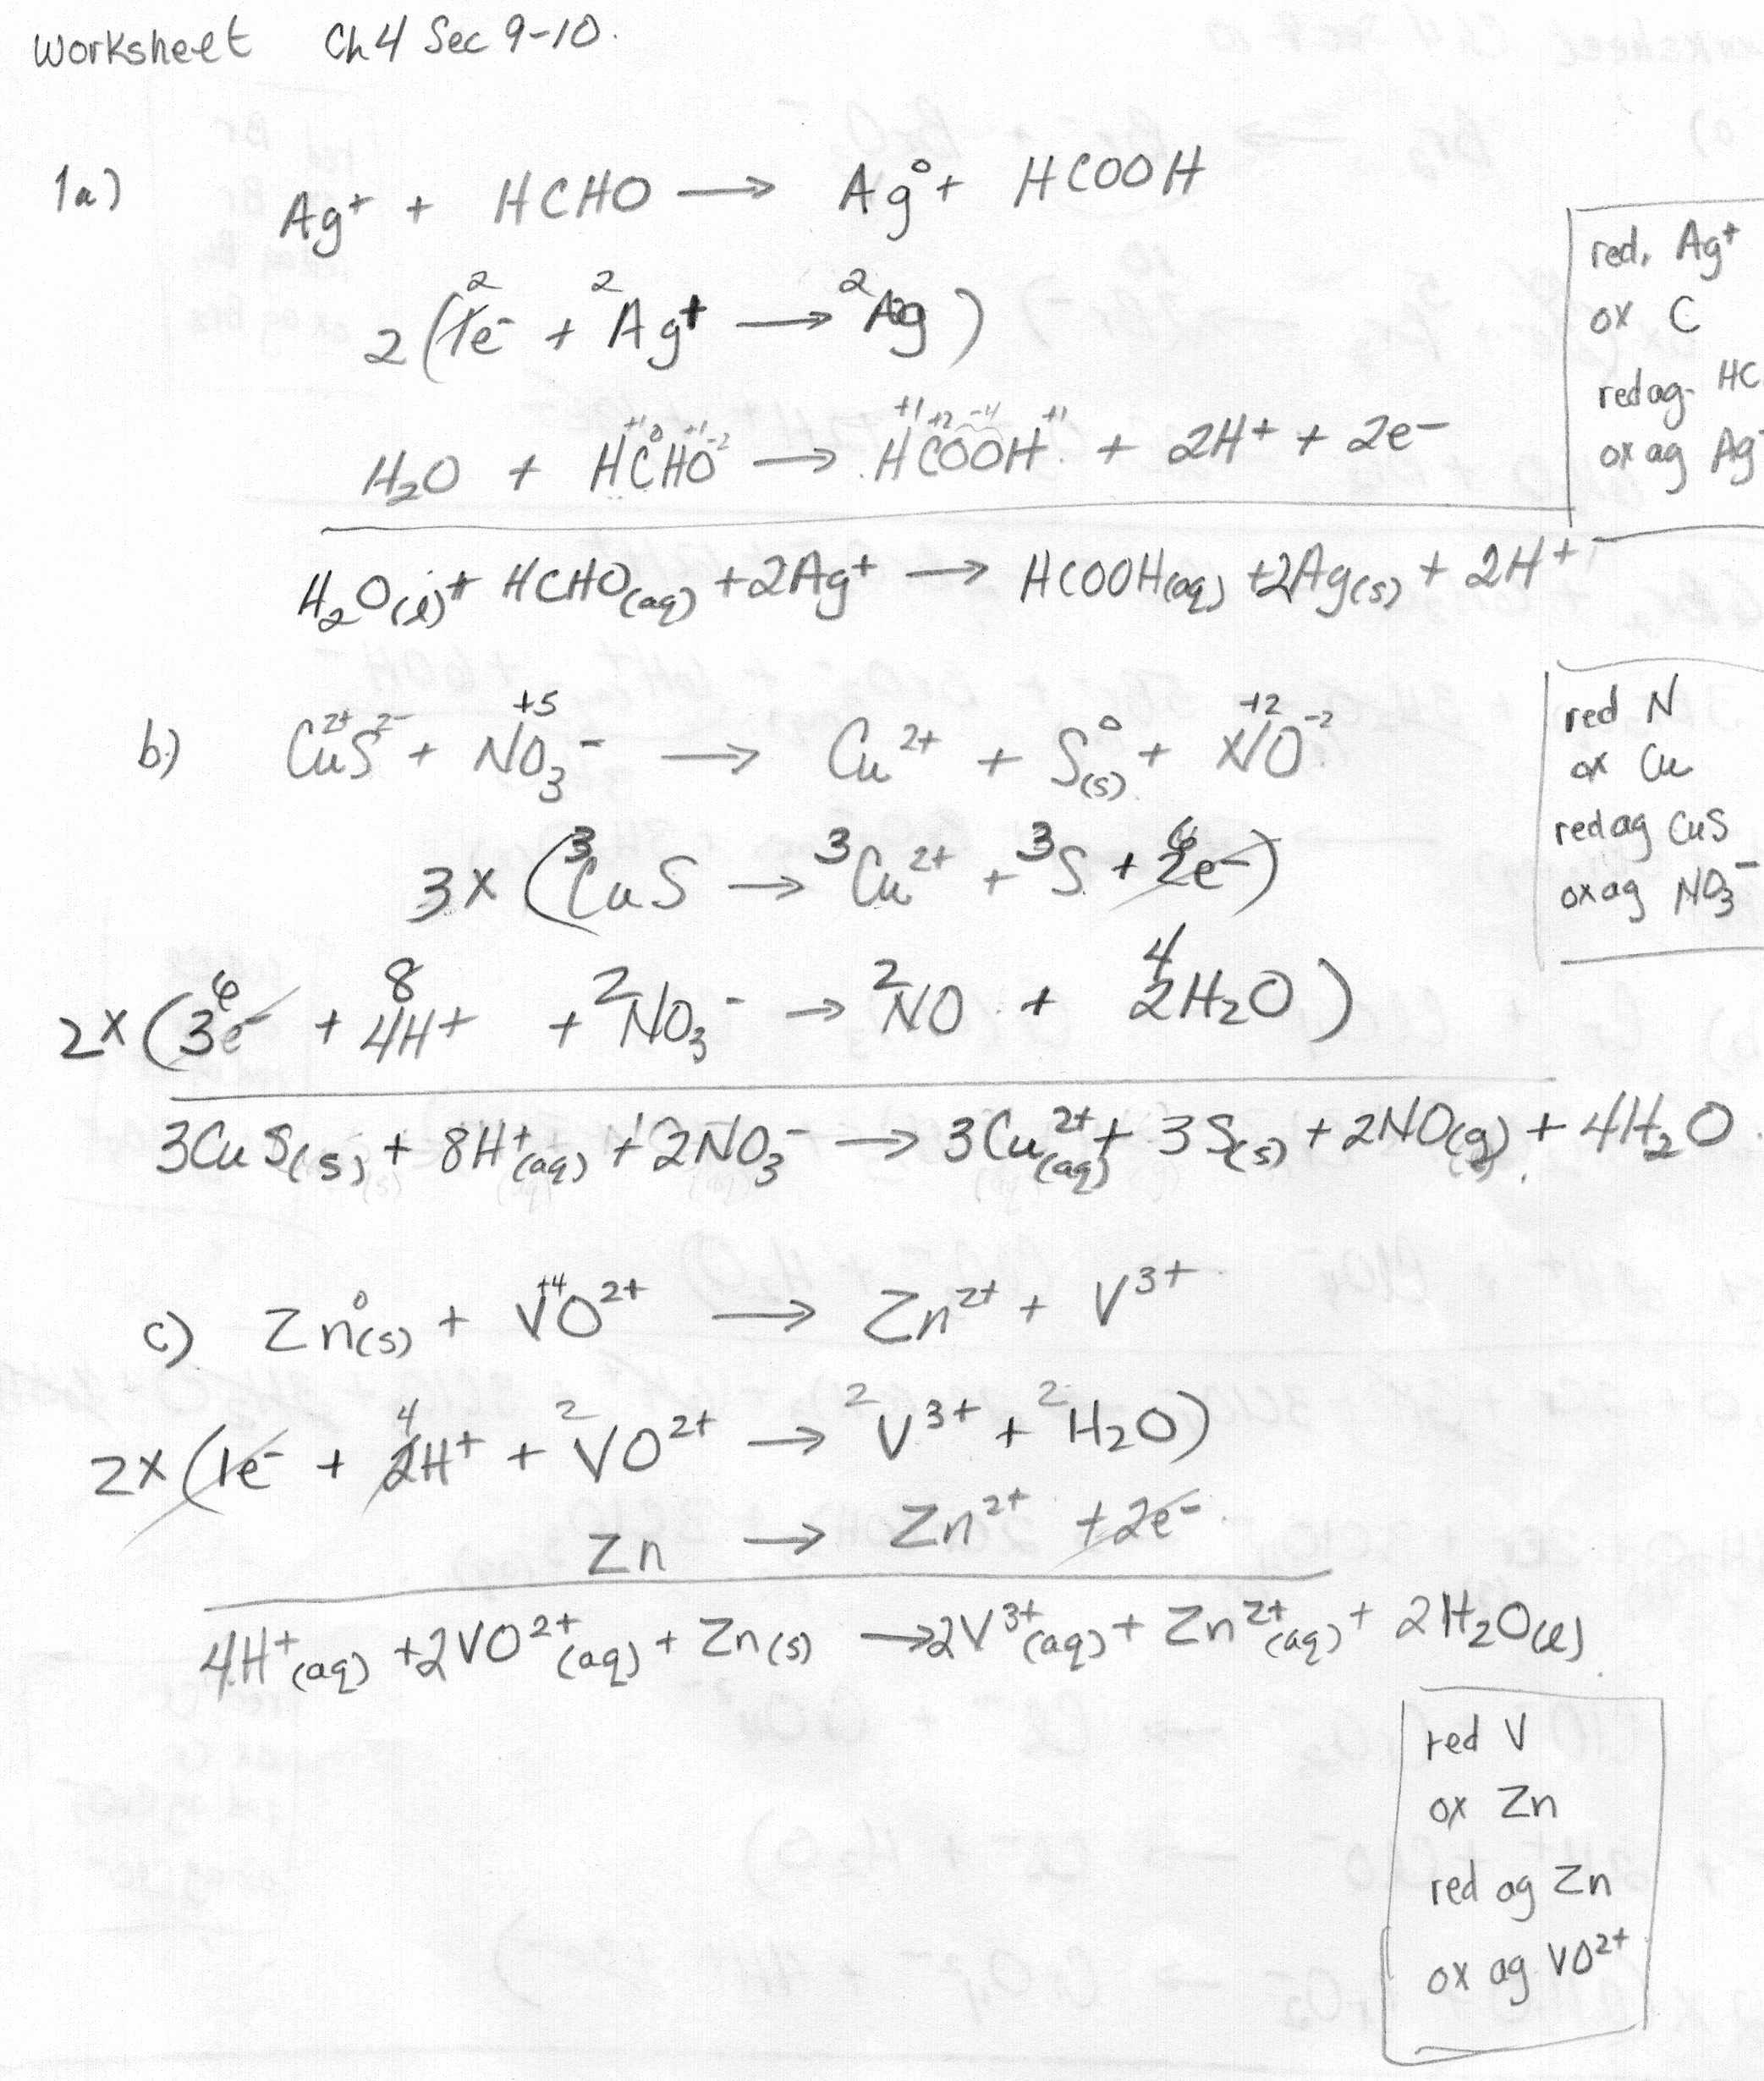 Worksheet Ch 4 Sec 9-10.
1a) Ag⁺ + HCHO → Ag⁰ + HCOOH
2 2 2
2 (1e⁻ + Ag⁺ → Ag )
+1 0 +1 -2 +1 +2 -4 +1
H₂O + HCHO → HCOOH + 2H⁺ + 2e⁻
H₂O(l) + HCHO(aq) + 2Ag⁺ → HCOOH(aq) + 2Ag(s) + 2H⁺
red. Ag⁺
ox C
red ag. HC
ox ag Ag
+5 +2
b) Cu²⁺S²⁻ + NO₃⁻ → Cu²⁺ + S⁰(s) + NO⁻²
3 3 3 6
3 x (CuS → Cu²⁺ + S + 2e⁻)
6 8 2 2 4
2 x (3e⁻ + 4H⁺ + NO₃⁻ → NO + 2H₂O )
3CuS(s) + 8H⁺(aq) + 2NO₃⁻ → 3Cu²⁺(aq) + 3S(s) + 2NO(g) + 4H₂O
red N
ox Cu
red ag CuS
ox ag NO₃⁻
0 +4
c) Zn(s) + VO²⁺ → Zn²⁺ + V³⁺
4 2 2 2
2x (1e⁻ + 2H⁺ + VO²⁺ → V³⁺ + H₂O)
Zn → Zn²⁺ + 2e⁻
4H⁺(aq) + 2VO²⁺(aq) + Zn(s) → 2V³⁺(aq) + Zn²⁺(aq) + 2H₂O(l)
red V
ox Zn
red ag Zn
ox ag VO²⁺